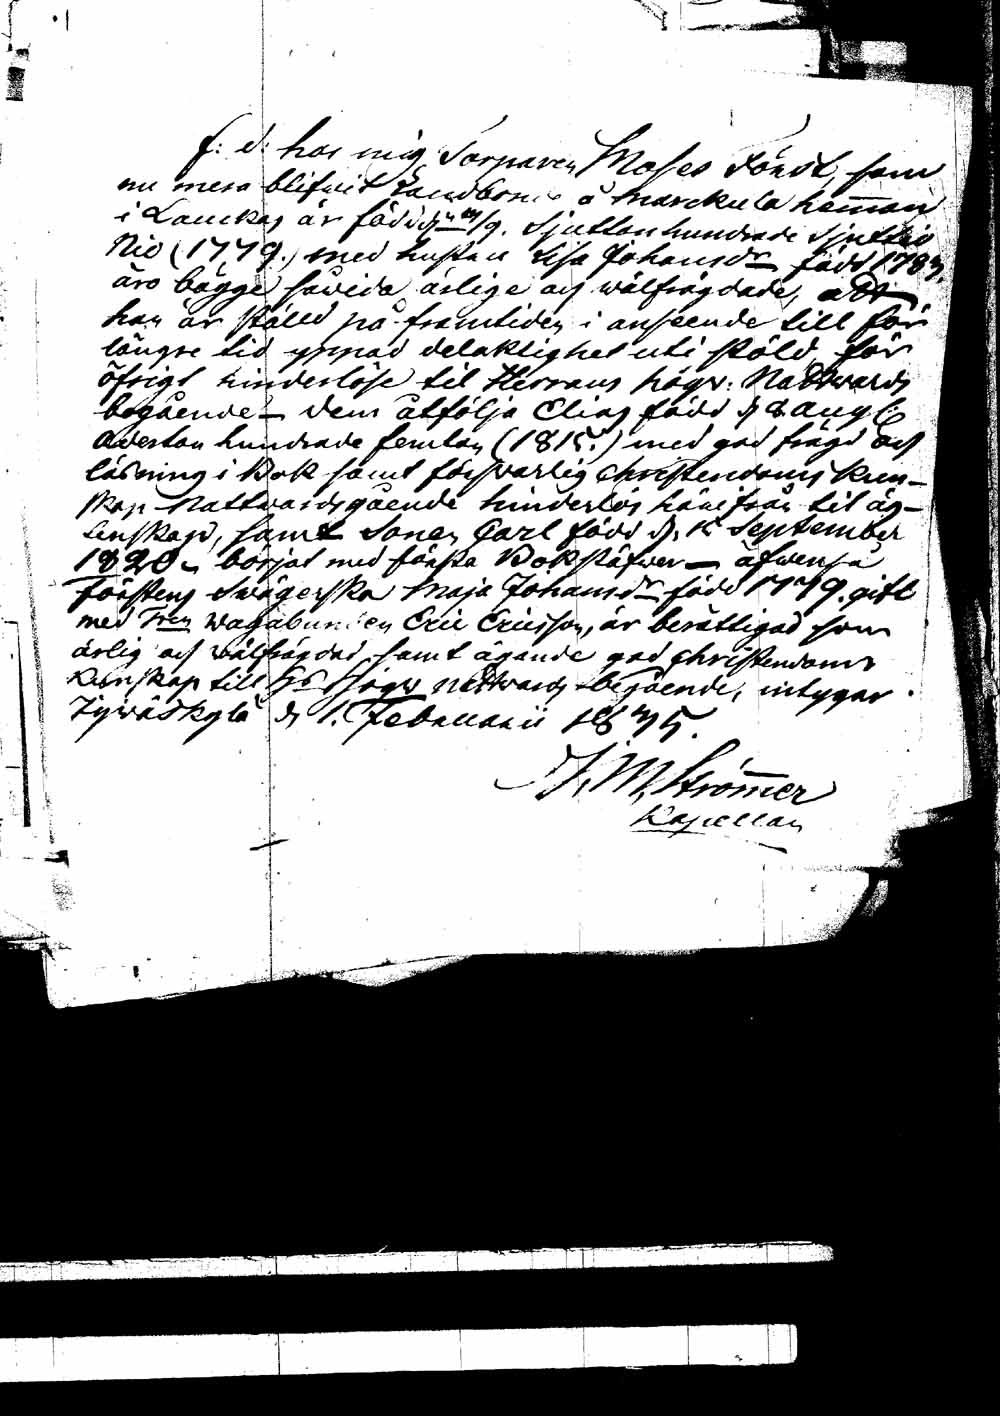 f: d: hos mig Torparen Moses Först, som
nu mera blifvit Landbonde å Marckula hemman
i Laukas är född d. /9. Sjuttonhundrade Sjuttio
Nio (1779.) med hustru Lisa Johansdr född 1783,
äro bägge såvida ärlige och wälfrägdade, att
han är ställd på framtiden i anseende till för
längre tid yppad delaktighet uti stöld, för
öfrigt hinderlöse til Herrans högv: Nattwards
begående – dem åtfölja Elias född d. 8 Aug
Aderton hundrade femton (1815.) med god frägd och
läsning i Bok samt försvarlig Christendoms kun-
skap Nattwardsgående hinderlös härifrån til äg-
tenskap, samt Sonen Carl född d. 12 September
1820 – börjat med första Bokstäfver – äfvenså
Förstens Swägerska Maja Johansdr född 1779. gift
med Wagabunden Eric Ericsson, är berättigad som
ärlig och wälfrägdad samt ägande god Christendoms
kunskap till Hs Högv Nattwards begående, intygar
Jywäskylä d. 1. Februarii 1835.
J. M. Strömer
Kapellan